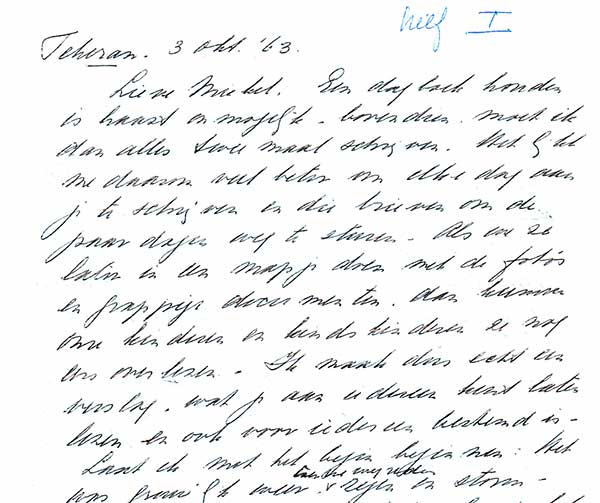 Brief I
Teheran. 3 okt. '63.
Lieve Miebel. Een dagboek houden
is haast onmogelijk. bovendien moet ik
dan alles twee maal schrijven. Het lijkt
me daarom veel beter om elke dag aan
je te schrijven en die brieven om de
paar dagen weg te sturen. Als we ze
laten in een mapje doen met de foto's
en grappige documenten. dan kunnen
onze kinderen en kindskinderen ze nog
eens overlezen. Ik maak dus echt een
verslag. wat je aan iedereen kunt laten
lezen en ook voor iedereen bestemd is.
Laat ik met het begin beginnen: Het
was weer regen en storm